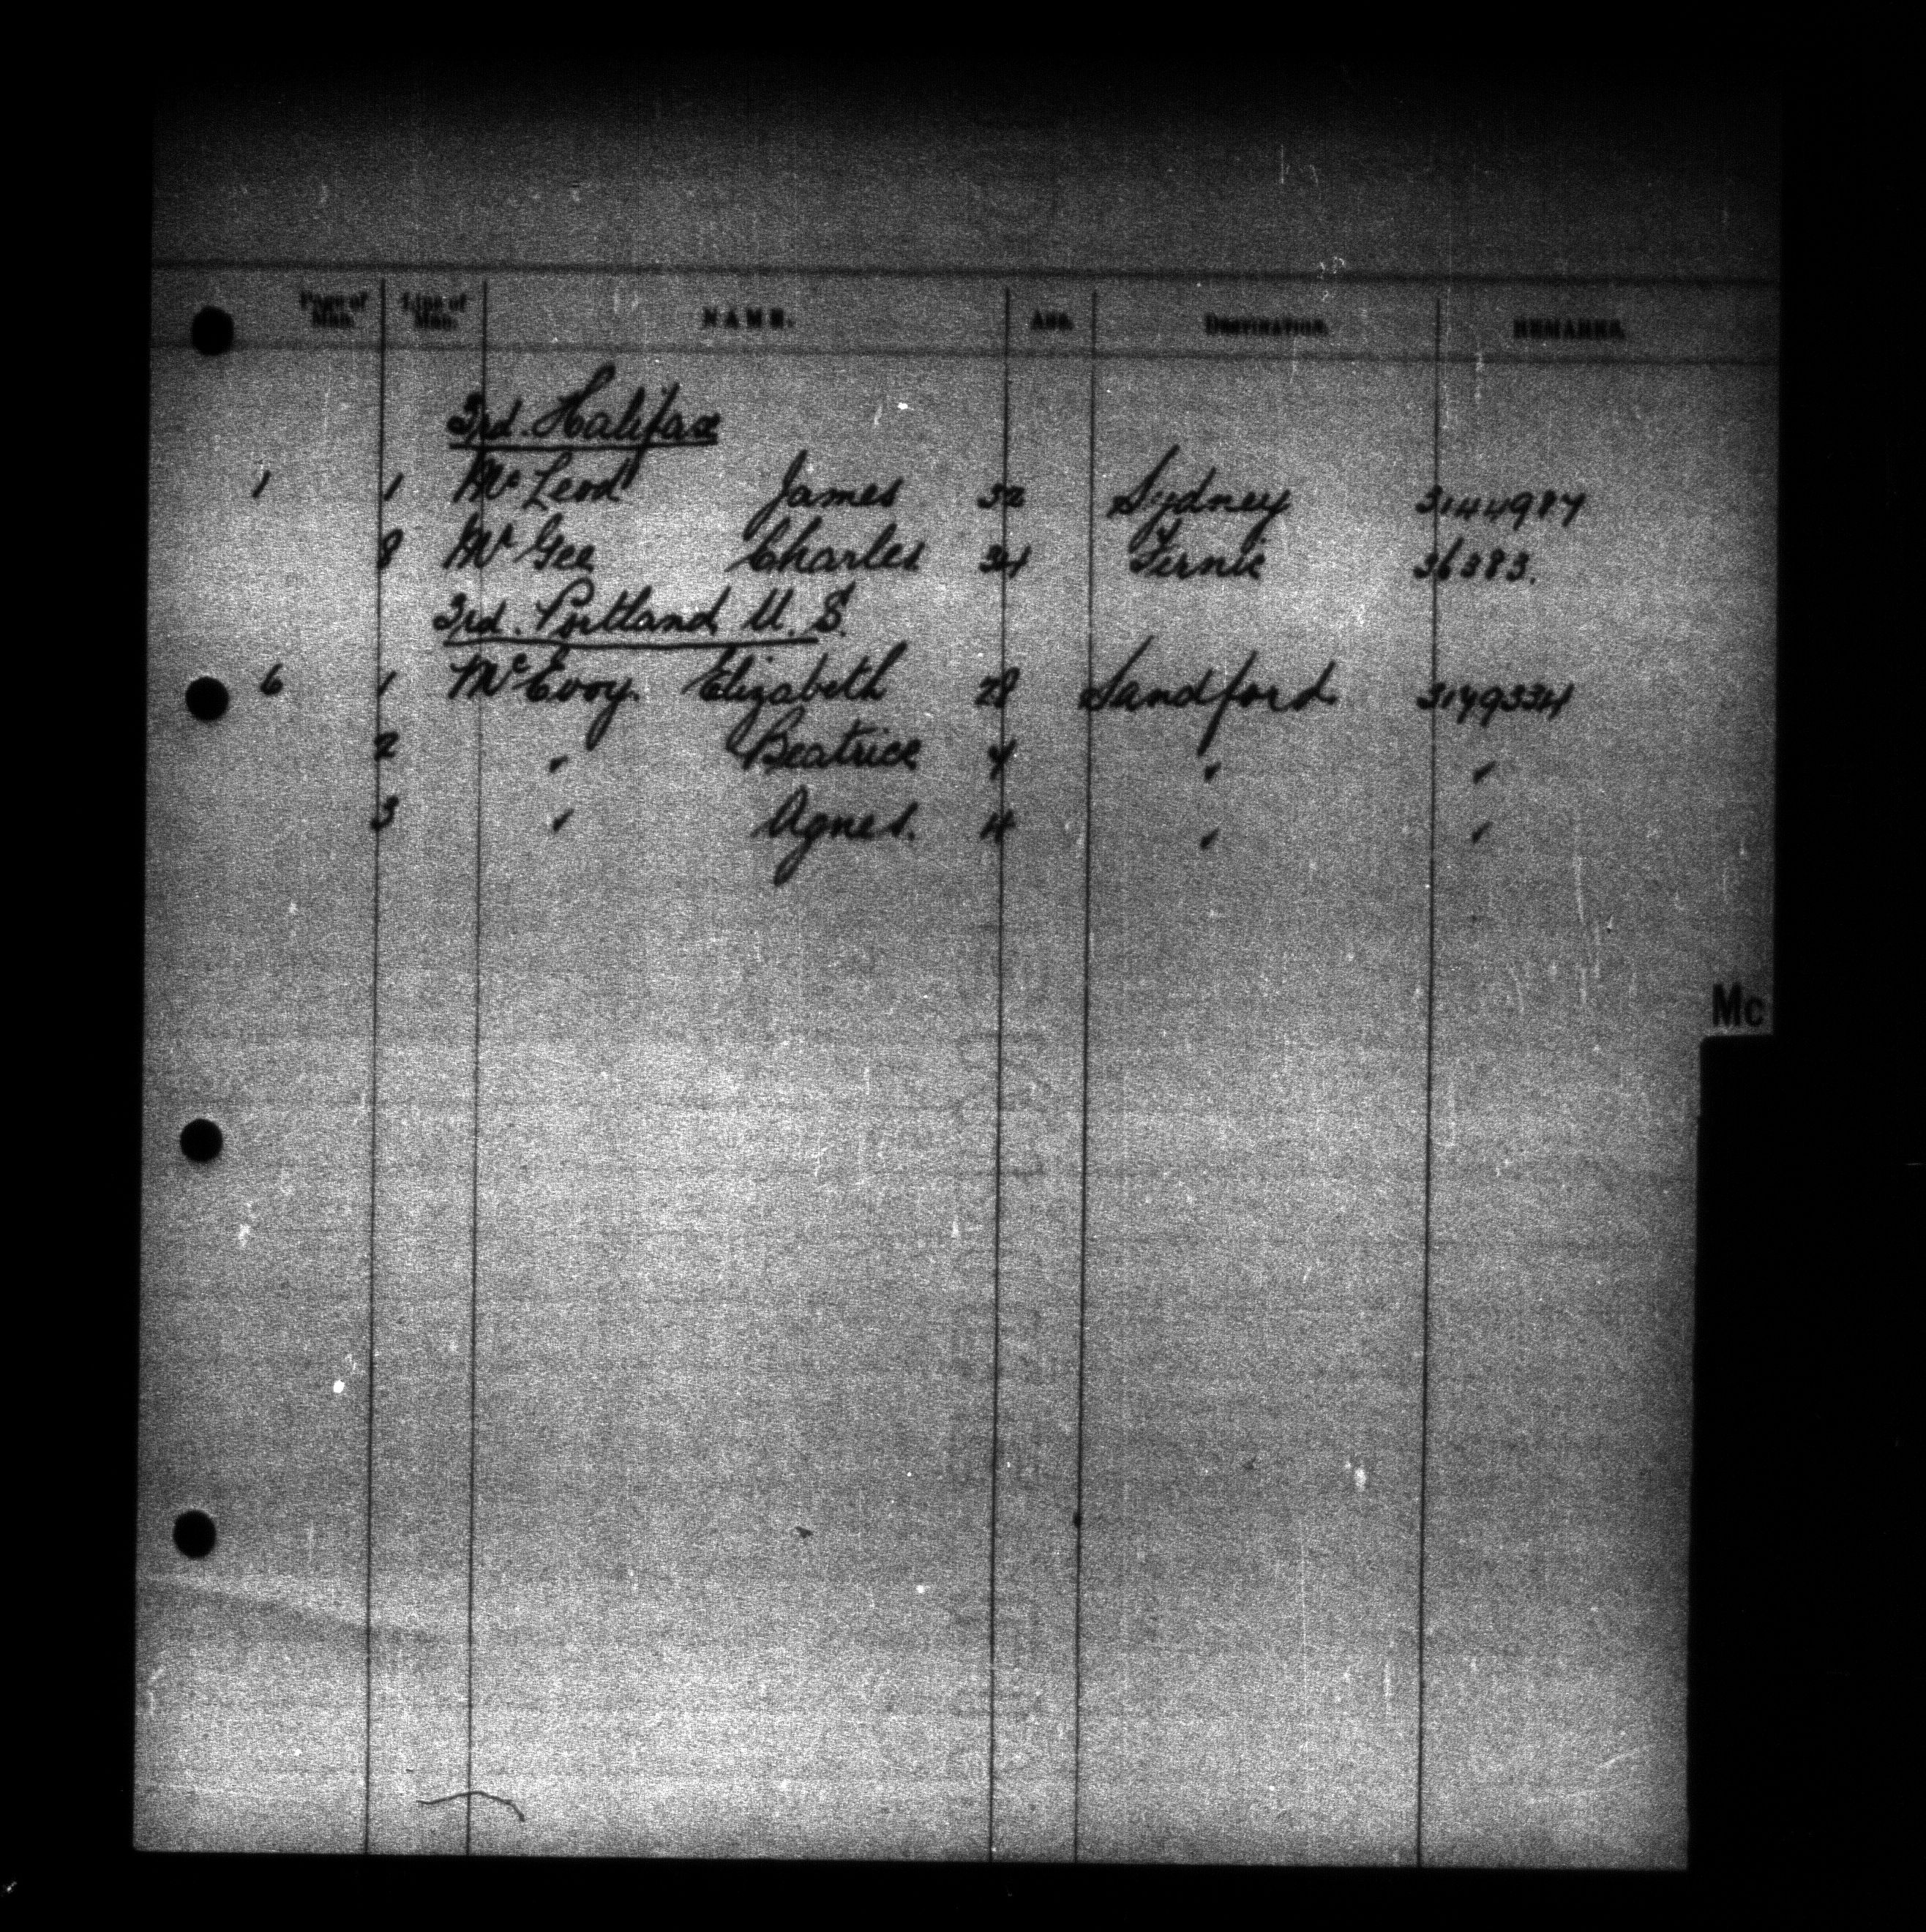 Page of Man. Line of Man. NAME. AGE. DESTINATION. REMARKS.
3rd. Halifax
1 1 McLeod James 32 Sydney 3144987
8 McGee Charles 34 Fernie 36383.
3rd. Portland U.S.
6 1 McEvoy. Elizabeth 28 Sandford 3149334
2 " Beatrice 4 " "
3 " Agnes. 11 " "
Mc